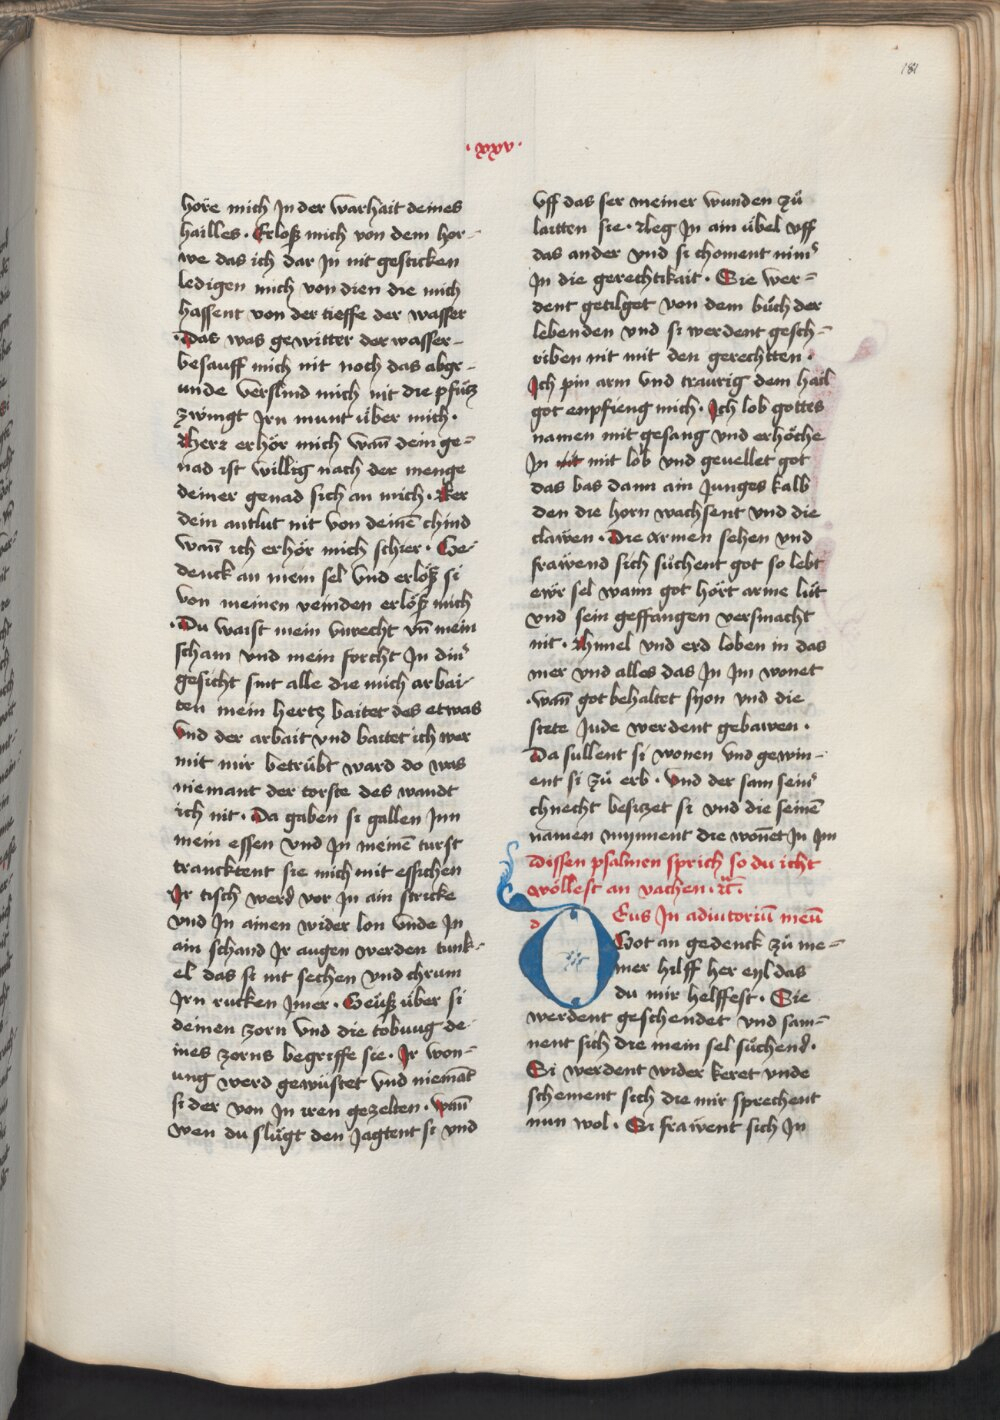 181
· xxv ·
höre mich Jn der warhait deines
hailles · Erlöß mich von dem hor-
we das ich dar Jn nit gesticken
ledigen mich von dien die mich
hassent von der tieffe der wasser
· Das was gewitter der wasser-
besauff mich nit noch das abgr-
unde verslind mich nit die pfütz
zwingt Jrn munt über mich ·
Herr erhör mich wañ dein ge=
nad ist willig nach der menge
deiner genad sich an mich · Ker
dein antlut nit von deinē chind
wañ ich erhör mich schier · Ge-
denck an mein sel vnd erlöß si
von meinen veinden erlöß mich
· Du waist mein vnrecht vñ mein
scham vnd mein forcht Jn dinr
gesicht sint alle die mich arbai-
ten mein hertz baitet des etwas
vnd der arbait vnd baitet ich wer
mit mir betrübt ward do was
niemant der torste des wandt
ich nit · Da gaben si gallen Jnn
mein essen vnd Jn meinē turst
trancktent sie mich mit essichen
Jr tisch werd vor Jn ain stricke
vnd Jn ainen wider lon vnde Jn
ain schand Jr augen werden tunk-
el das si nit sechen vnd chrum
Jrn rucken Jmer · Geüß über si
deinen zorn vnd die tobung de-
ines zorns begriffe sie · Jr won=
ung werd gewüstet vnd niemāt
si der von Jn iren gezelten · wañ
wen du slügt den Jagtent si vnd
vff das ser meiner wunden zů
laitten sie · Leg Jn ain übel vff
das ander vnd si choment nimr
Jn die gerechtikait · Sie wer=
dent getilget von dem bůch der
lebenden vnd si werdent gesch=
riben nit mit den gerechtten ·
Jch pin arm vnd traurig dem hail
got enpfieng mich · Jch lob gottes
namen mit gesang vnd erhöche
Jn nit mit lob vnd geuellet got
das bas dann ain Junges kalb
den die horn wachsent vnd die
clawen · Die armen sehen vnd
fräwend sich sůchent got so lebt
ewr sel wann got hört arme lüt
vnd sein geffangen versmacht
nit · Himel vnd erd loben in das
mer vnd alles das Jn Jm wonet
· wañ got behaltet syon vnd die
stete Jude werdent gebawen ·
Da sullent si wonen vnd gewin-
ent si zů erb · Vnd der sam seinr
chnecht besizet si vnd die seinē
namen mynnent die wonēt Jn Jm
Dissen psalmen sprich so du icht
wöllest an vachen · ꝛc̄ ·
d
Deus Jn adiutoriū meū
Got an gedenck zů me=
iner hilff her eyl das
du mir helffest · Sie
werdent geschendet vnd sam=
nent sich die mein sel sůchend ·
Si werdent wider keret vnde
schement sich die mir sprechent
nun wol · Si fraiwent sich Jn